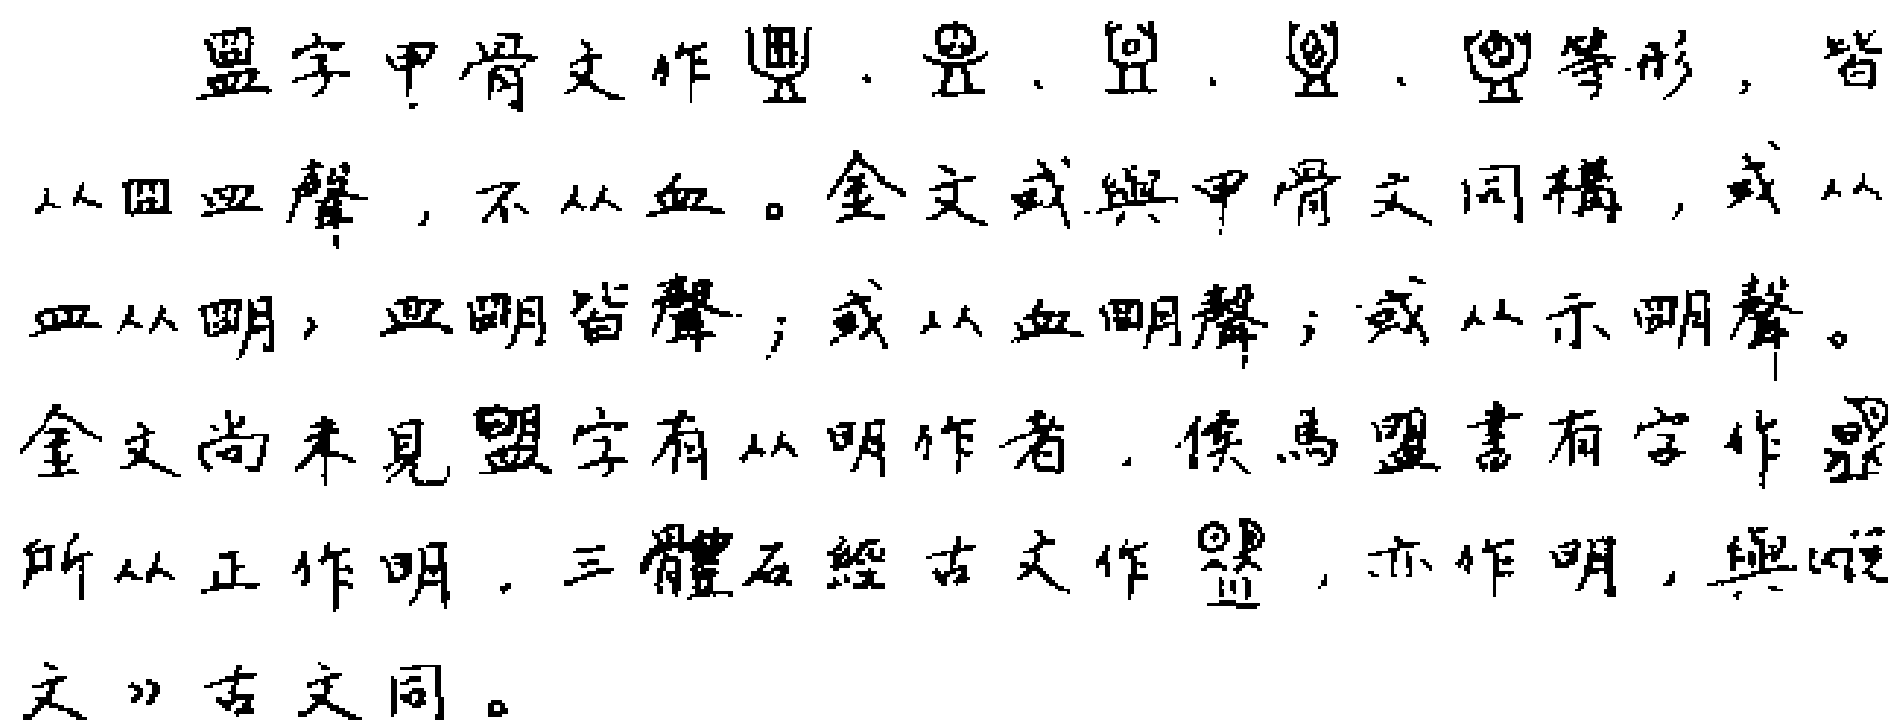 盟字甲骨文作、、、、等形，皆
从囧皿聲，不从血。金文或與甲骨文同構，或从
皿从明，皿明皆聲；或从血明聲；或从示明聲。
金文尚未見盟字有从明作者．侯馬盟書有字作
所从正作明．三體石經古文作，亦作明，與《說
文》古文同。